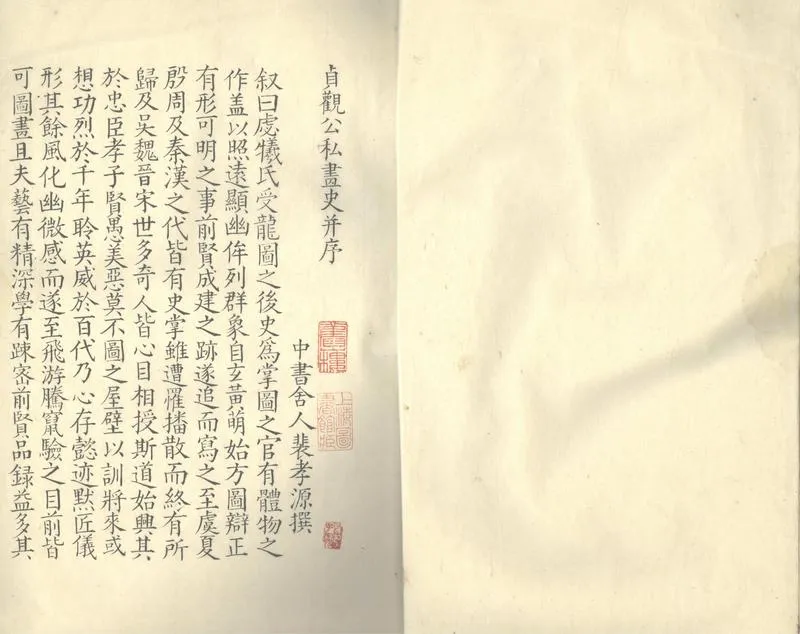 貞觀公私畫史并序
中書舍人裴孝源撰
叙曰虙犧氏受龍圖之後史爲掌圖之官有體物之
作盖以照遠顯幽侔列群象自玄黃萌始方圖辯正
有形可明之事前賢成建之跡遂追而寫之至虞夏
殷周及秦漢之代皆有史掌雖遭罹播散而終有所
歸及吳魏晉宋世多奇人皆心目相授斯道始興其
於忠臣孝子賢愚美惡莫不圖之屋壁以訓將來或
想功烈於千年聆英威於百代乃心存懿迹默匠儀
形其餘風化幽微感而遂至飛游騰竄驗之目前皆
可圖畫且夫藝有精深學有踈密前賢品録益多其
上海圖書館藏